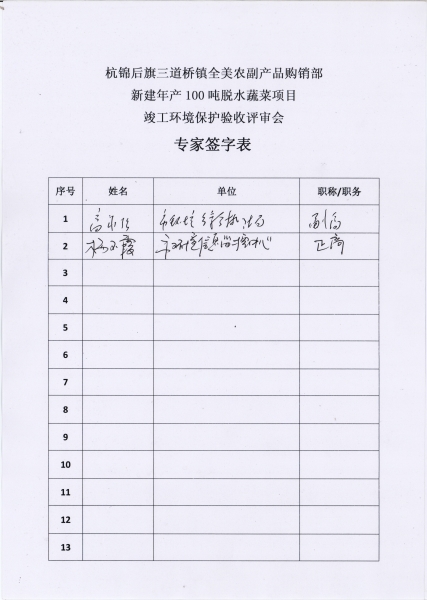 杭锦后旗三道桥镇全美农副产品购销部
新建年产100吨脱水蔬菜项目
竣工环境保护验收评审会
专家签字表
序号 姓名 单位 职称/职务
1 副高
2 杨玉霞 正高
3
4
5
6
7
8
9
10
11
12
13